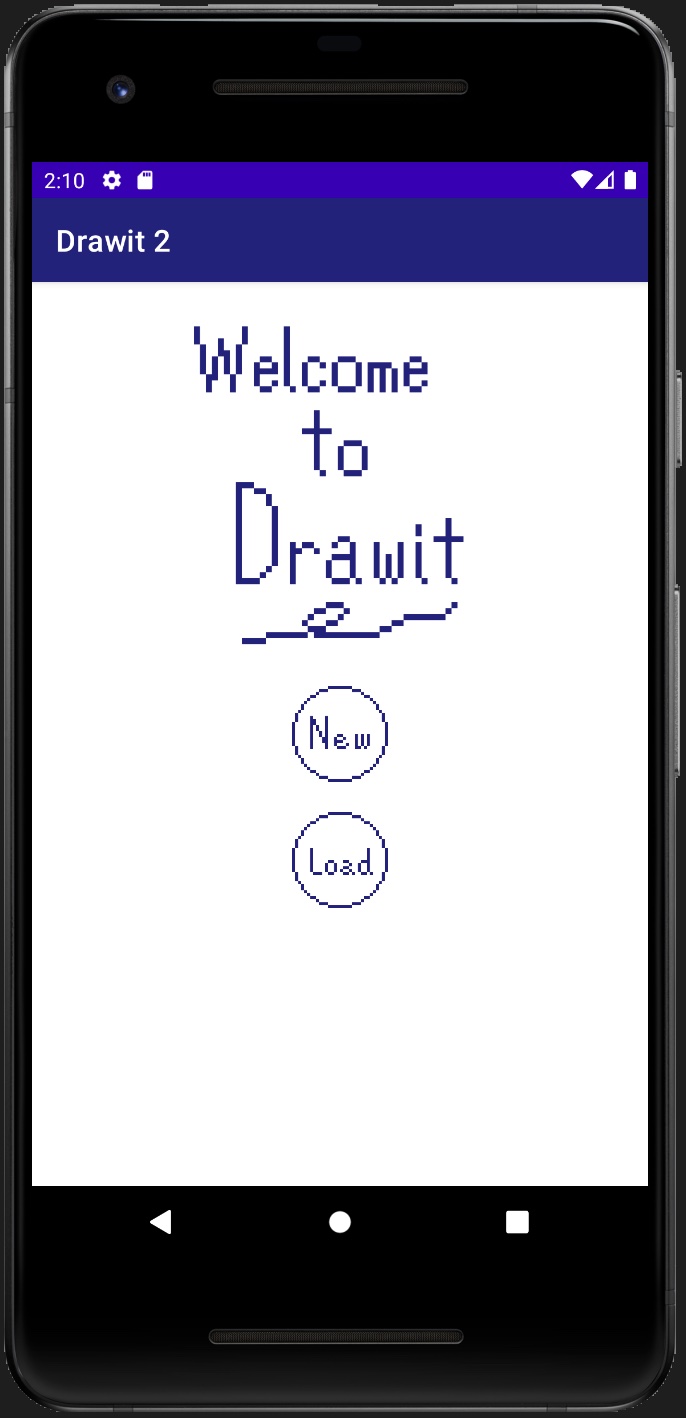 2:10
Drawit 2
Welcome
to
Drawit
New
Load